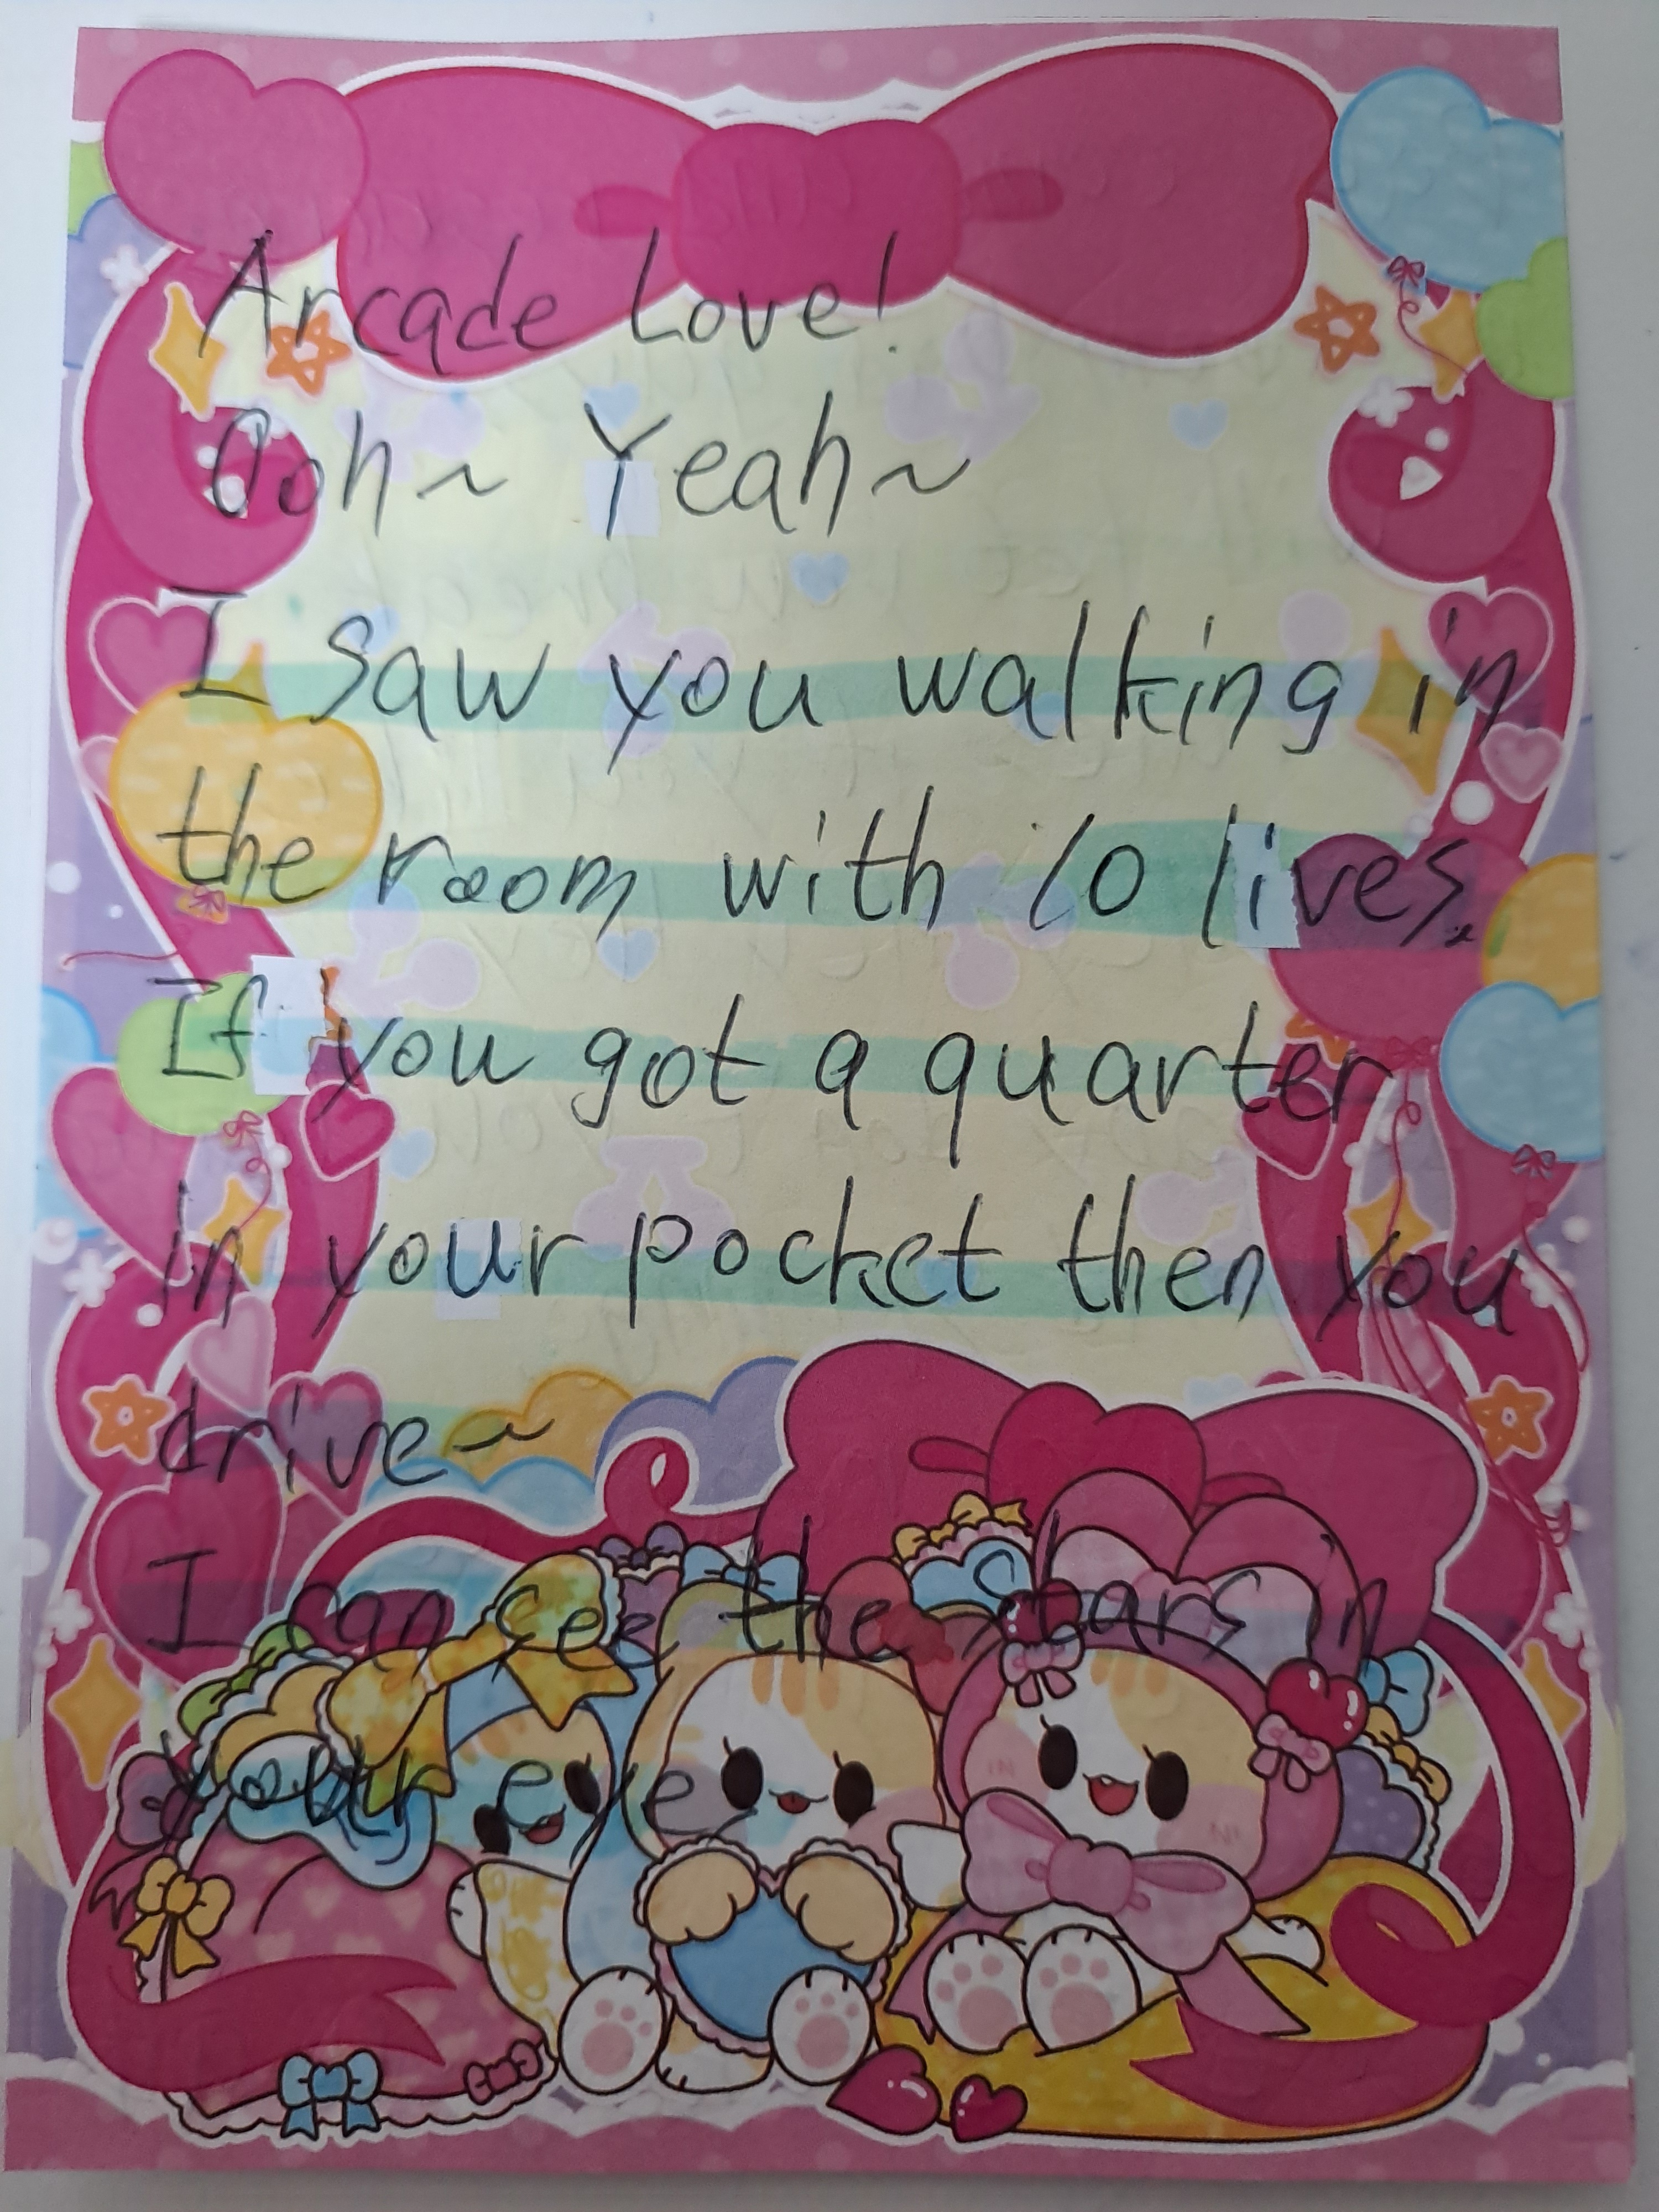 Arcade Love!
Ooh~ Yeah~
I saw you walking in
the room with 10 lives.
If you got a quarter
in your pocket then you
drive~
I can see the stars in
your eye